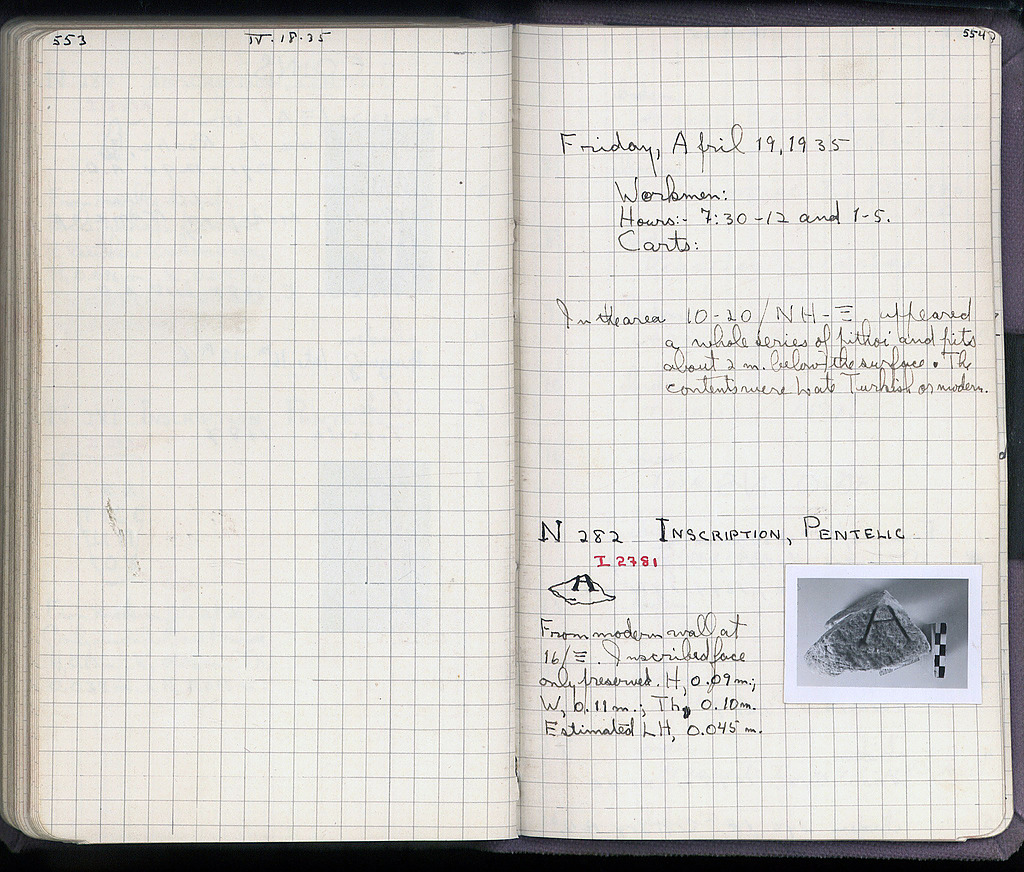 553
IV.18.35
554
Friday, April 19, 1935
Workmen:
Hours:- 7:30-12 and 1-5.
Carts:
In the area 10-20/NH-Ξ appeared
a whole series of pithoi and pits
about 2 m. below the surface. The
contents were Late Turkish or modern.
N 282 INSCRIPTION, PENTELIC
I 2781
A
From modern wall at
16/Ξ. Inscribed face
only preserved. H, 0.09 m.;
W, 0.11 m.; Th, 0.10 m.
Estimated LH, 0.045 m.
A